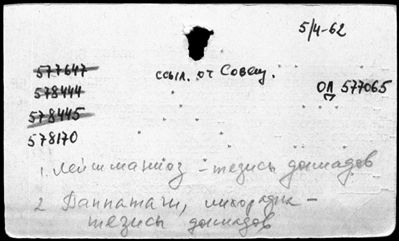 5/4-62
577647 ссыл. от Совещ.
578444 " " " ОП 577065
578445 " " "
578170 " " "
1. Лейшманиоз - тезисы докладов
2 Паппатачи, лихорадка -
тезисы докладов